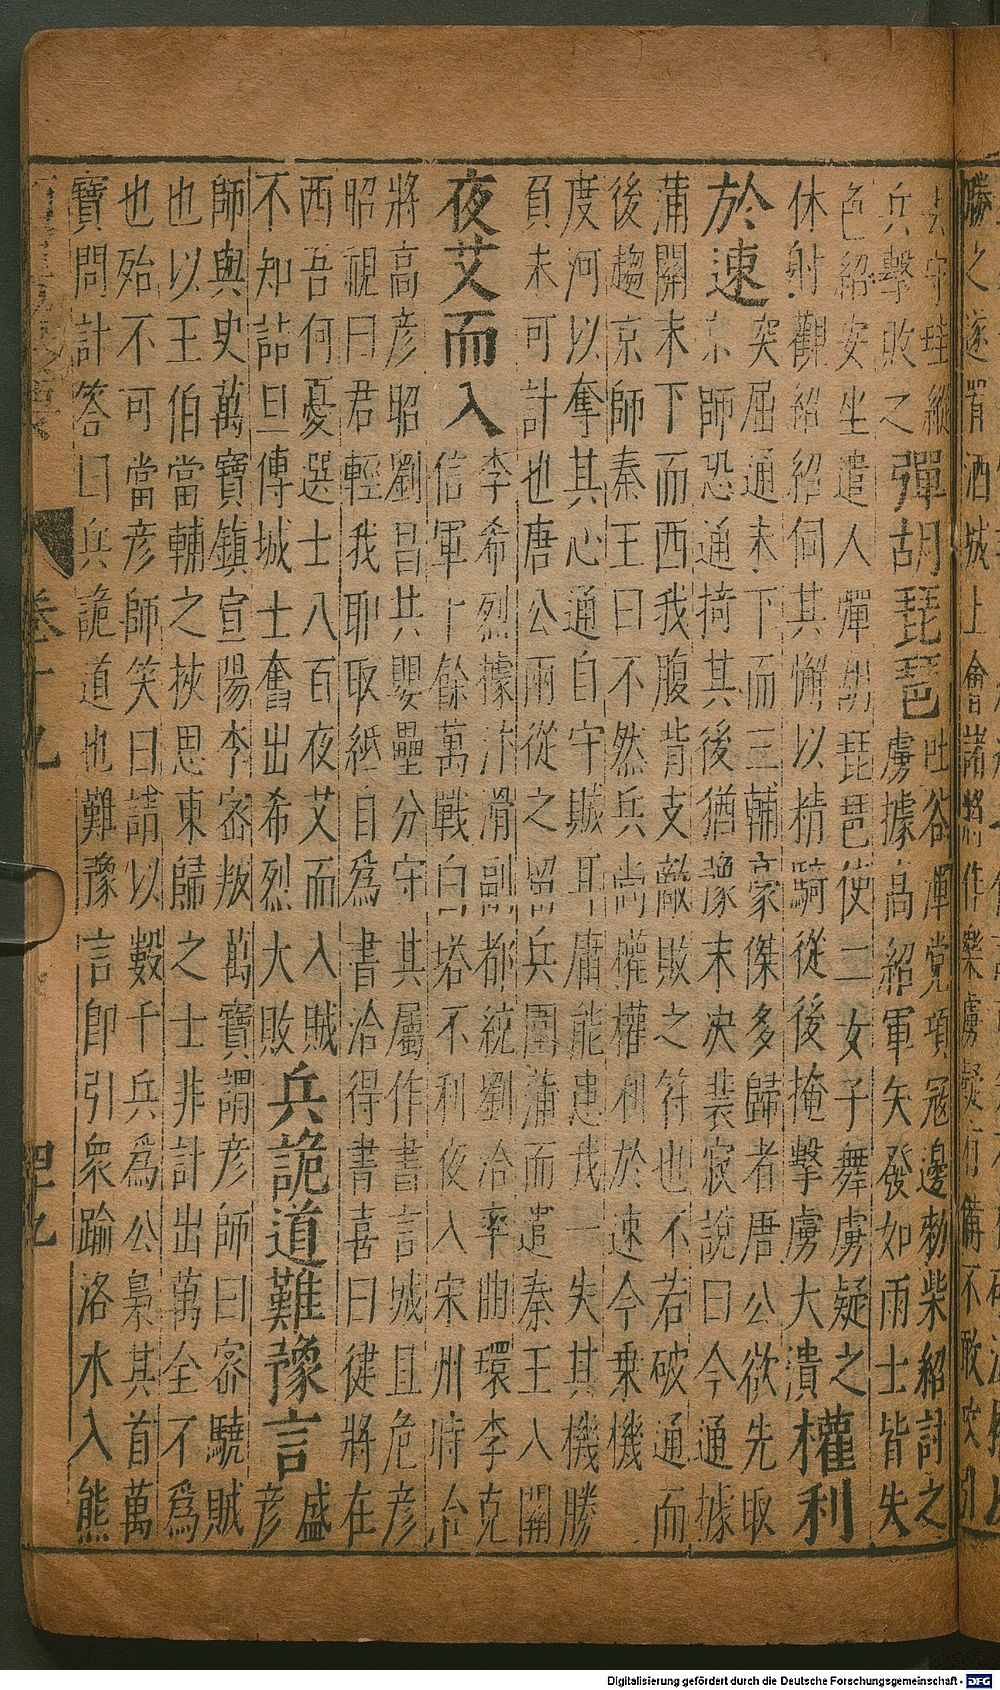 勝之遂宵酒城上會諸將作樂虜疑有備不敢攻引
去守珪縱
兵擊敗之
彈胡琵琶
吐谷渾党項冦邊勑柴紹討之
虜據高紹軍矢發如雨士皆失
色紹安坐遣人彈胡琵琶使二女子舞虜疑之
休射觀紹紹伺其懈以精騎從後掩擊虜大潰
權利
於速
突屈通未下而三輔豪傑多歸者唐公欲先取
京師恐通掎其後猶豫未决裴寂說曰今通據
蒲關未下而西我腹背支敵敗之符也不若破通而
後趨京師秦王曰不然兵尚權權利於速今乘機
度河以奪其心通自守賊耳庸能患我一失其機勝
負未可計也唐公兩從之留兵圍蒲而遣秦王入關
夜艾而入
李希烈據汴滑副都統劉洽率曲環李克
信軍十餘萬戰白塔不利夜入宋州時洽
將高彥昭劉昌共嬰壘分守其屬作書言城且危彥
昭視曰君輕我耶取紙自爲書洽得書喜曰健將在
西吾何憂選士八百夜艾而入賊
不知詰旦傅城士奮出希烈大敗
兵詭道難豫言
盛
彥
師與史萬寶鎮宣陽李密叛萬寶謂彥師曰密驍賊
也以王伯當輔之挾思東歸之士非計出萬全不爲
也殆不可當彥師笑曰請以數千兵爲公梟其首萬
寶問計答曰兵詭道也難豫言卽引衆踰洛水入熊
卷十九
四九
Digitalisierung gefördert durch die Deutsche Forschungsgemeinschaft - DFG